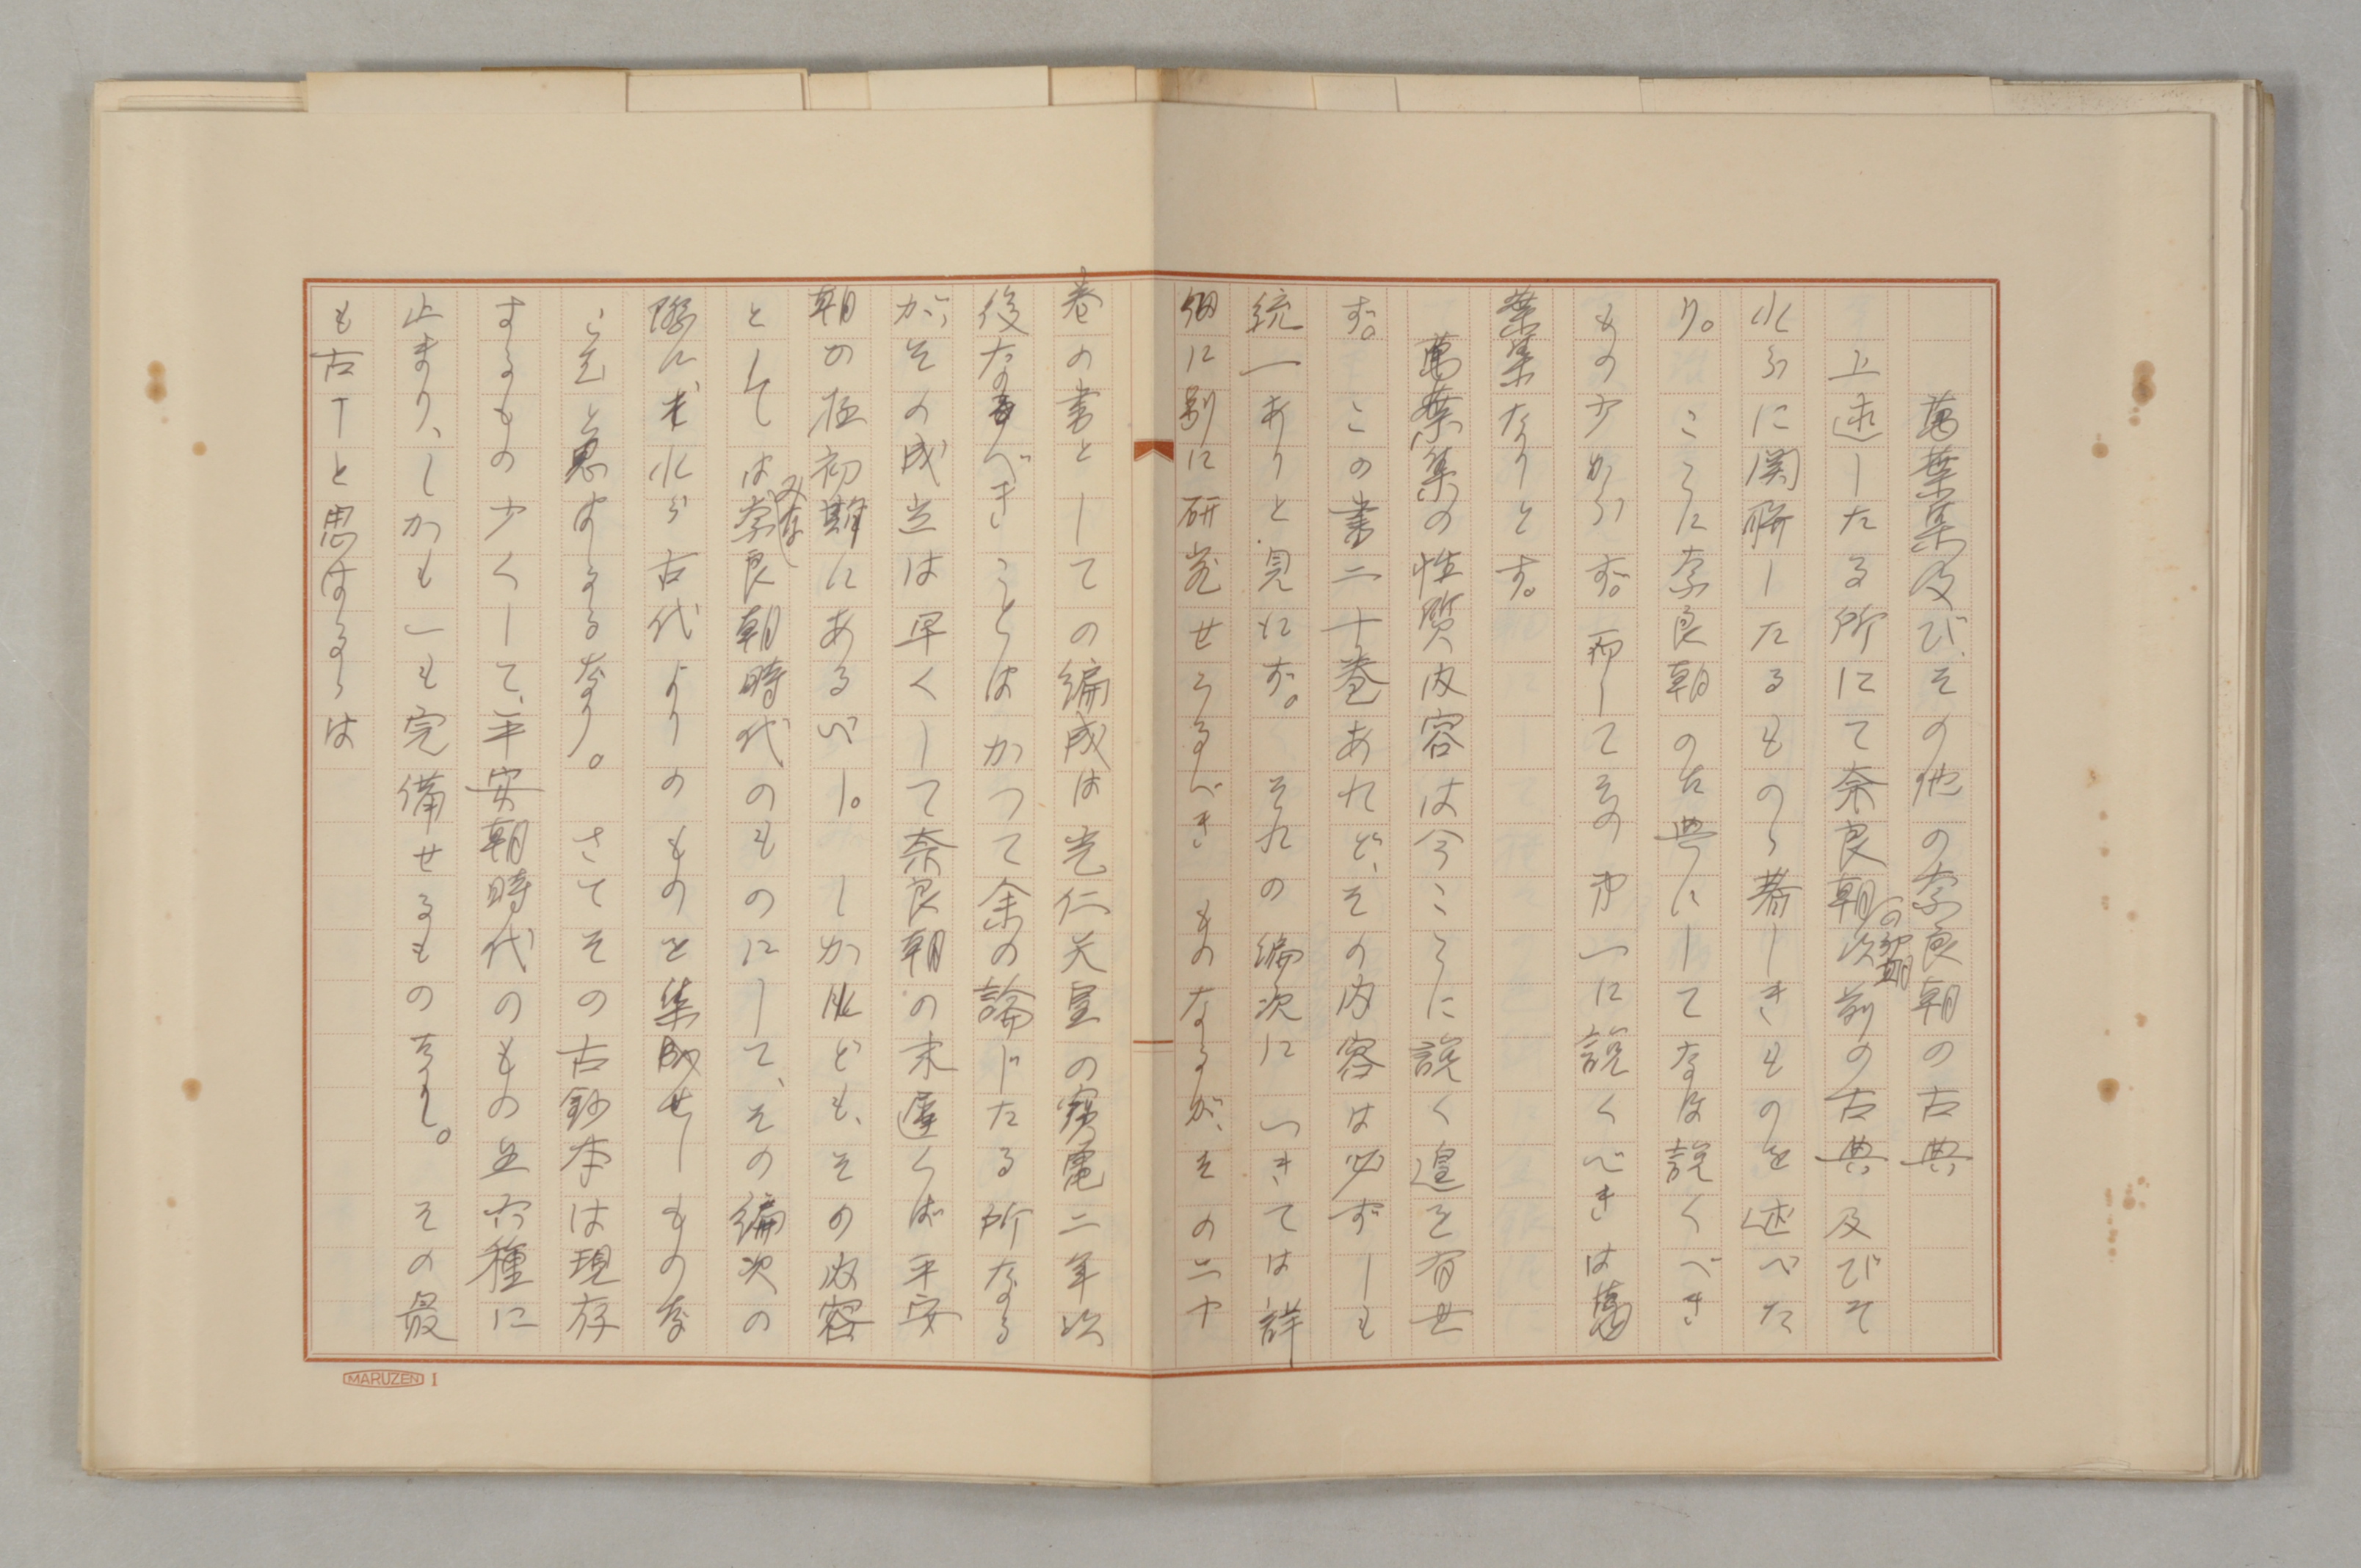 萬葉集及び、その他の奈良朝の古典
上述したる所にて奈良朝の初期以前の古典及びそ
れらに関聯したるものゝ著しきものを述べた
り。こゝに奈良朝の古典にしてなほ説くべき
もの少からず。而してその第一に説くべきは萬
葉集なりとす。
萬葉集の性質内容は今こゝに説く遑を有せ
ず。この書二十巻あれど、その内容は必ずしも
統一ありと見えず。それの編次につきては詳
細に別に研究せらるべきものなるが、その二十
巻の書としての編成は光仁天皇の寳亀二年以
後なるべきことはかつて余の論じたる所なる
が、その成立は早くして奈良朝の末遅くば平安
朝の極初期にあるべし。しかれども、その内容
としてはみな奈良朝時代のものにして、その編次の
際にそれら古代よりのものを集成せしものな
らむと思はるゝなり。さてその古鈔本は現存
するもの少くして、平安朝時代のもの五六種に
止まり、しかも一も完備せるものなし。その最
も古しと思はるゝは
MARUZEN I